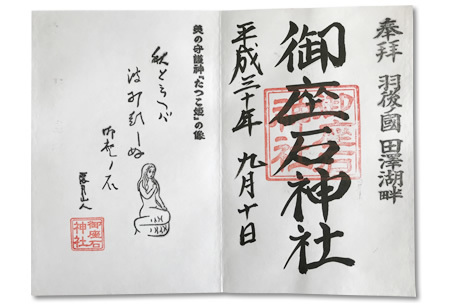 奉拝 羽後國 田澤湖畔
御座石神社
御座石神社
平成三十年 九月十日
美の守護神『たつこ姫』の像
御座ノ石
御座石神社